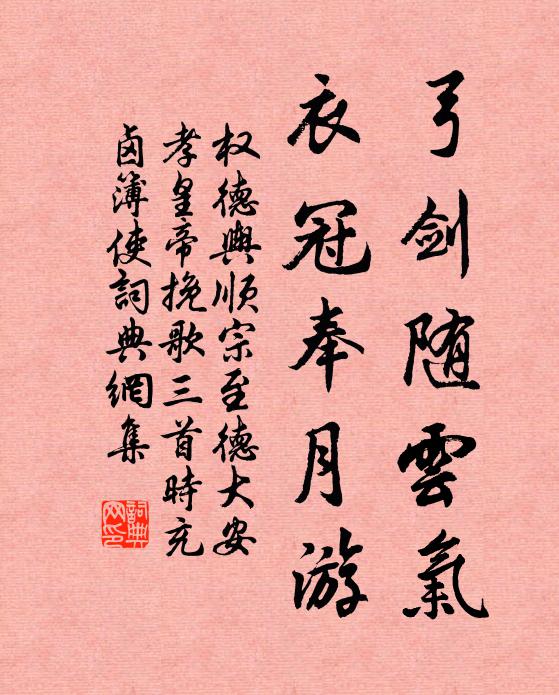 弓剑随雲氣
衣冠奉月游
权德輿順宗至德大安
孝皇帝挽歌三首時充
鹵簿使詞典網集
詞典
网印